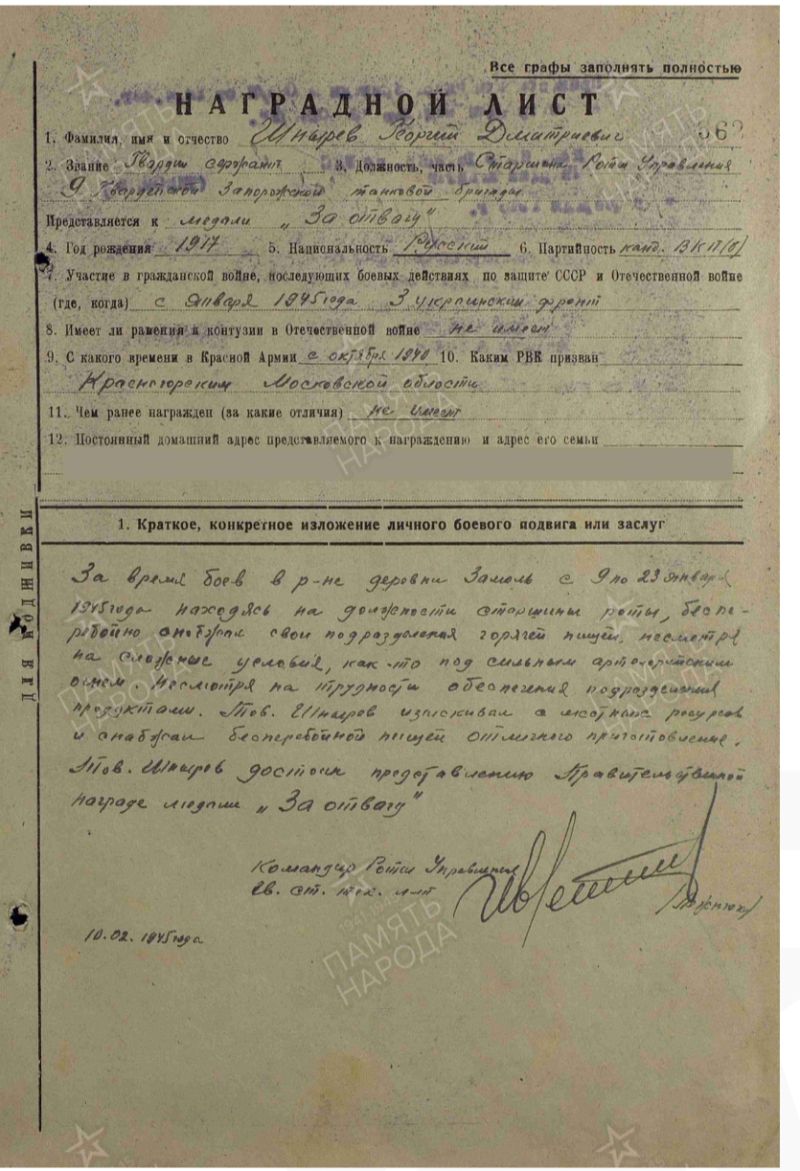 Все графы заполнять полностью
НАГРАДНОЙ ЛИСТ
1. Фамилия, имя и отчество Шнырев Георгий Дмитриевич
2. Звание Гвардии сержант 3. Должность, часть Старшина Роты Управления
9 Гвардейской Запорожской танковой бригады
Представляется к медали „За отвагу"
4. Год рождения 1917 5. Национальность Русский 6. Партийность канд. ВКП(б)
7. Участие в гражданской войне, последующих боевых действиях по защите СССР и Отечественной войне
(где, когда) с января 1945 года 3 украинский фронт
8. Имеет ли ранения и контузии в Отечественной войне не имеет
9. С какого времени в Красной Армии с октября 1940 10. Каким РВК призван
Красногорским Московской области
11. Чем ранее награжден (за какие отличия) не имеет
12. Постоянный домашний адрес представляемого к награждению и адрес его семьи
ДЛЯ ПОДШИВКИ
1. Краткое, конкретное изложение личного боевого подвига или заслуг
За время боев в р-не деревни Замоль с 9 по 23 января
1945 года находясь на должности старшины роты, беспе-
ребойно снабжал свои подразделения горячей пищей, несмотря
на сложные условия, как-то под сильным артиллерийским
огнем. Несмотря на трудности обеспечения подразделения
продуктами. Тов. Шнырев изыскивал с местных ресурсов
и снабжал бесперебойной пищей отличного приготовление.
Тов. Шнырев достоин представлению Правительственной
награде медали „За отвагу"
Командир Роты Управления
гв. ст. тех. л-т
10.02.1945 года
ПАМЯТЬ
НАРОДА